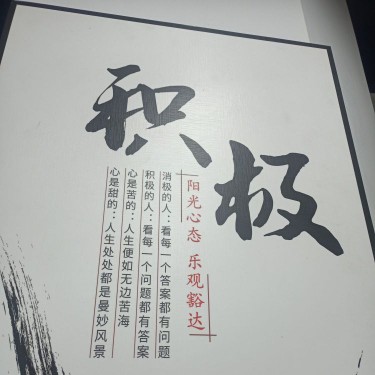 积极
阳光心态 乐观豁达
消极的人：看每一个答案都有问题
积极的人：看每一个问题都有答案
心是苦的：人生便如无边苦海
心是甜的：人生处处都是曼妙风景